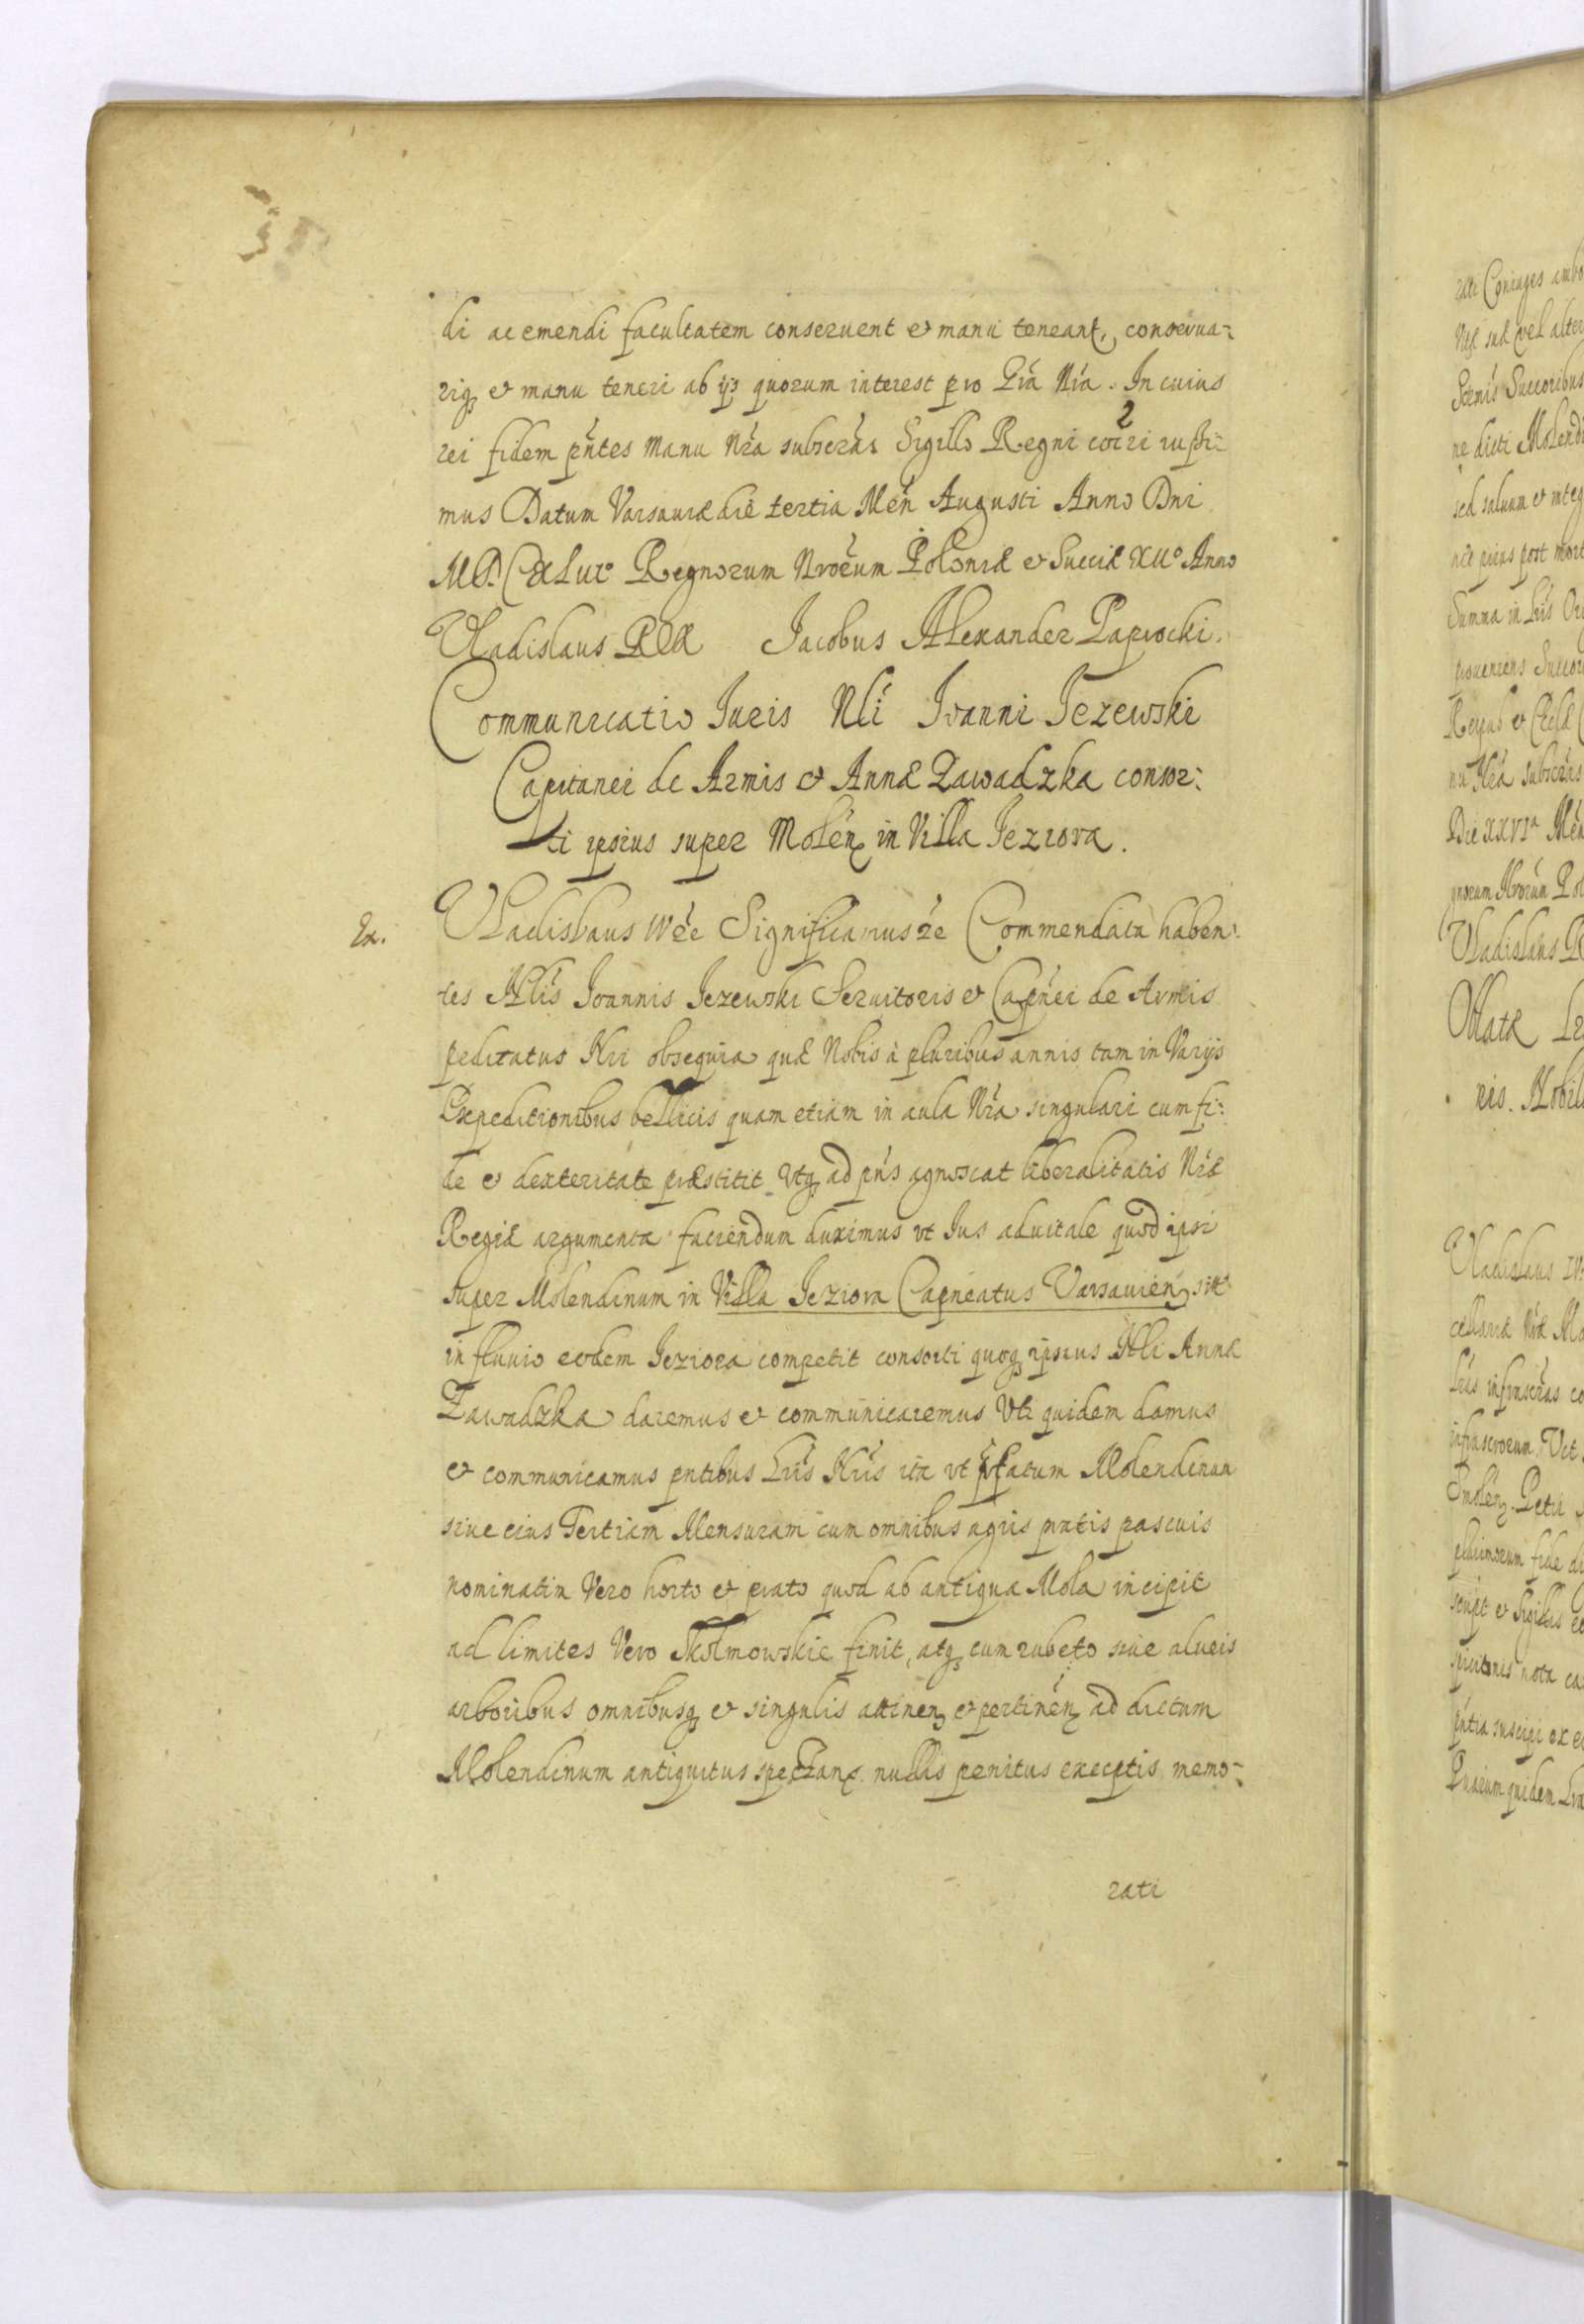 di ac emendi facultatem conseruent et manu teneant, conserua-
riq; et manu teneri ab ijs quorum interest pro Gra Nra. In cuius
rei fidem pntes manu Nra subscras Sigillo Regni coiri iussi-
mus Datum Varsauiæ die tertia Men Augusti Anno Dni
Regnorum Nrorum Poloniæ et Sueciæ Anno
Vladislaus Rex Jacobus Alexander Paprocki.
Communicatio Juris Nli Joanni Jezewski
Capitanei de Armis et Annæ Zawadzka consor-
ti ipsius super Molen in Villa Jeziora.
Ex. Vladislaus etc Significamus etc Commendata haben-
tes Nlis Joannis Jezewski Seruitoris et Capnei de Armis
peditatus Nri obsequia quæ Nobis à pluribus annis tam in Varijs
Expeditionibus bellicis quam etiam in aula Nra singulari cum fi-
de et dexteritate præstitit Vtq; ad pns agnoscat liberalitatis Nræ
Regiæ argumenta faciendum duximus vt Jus aduitale quod ipsi
super Molendinum in Villa Jeziora Capneatus Varsauien sit
in fluuio eodem Jeziora competit consorti quoq; ipsius Nli Annæ
Zawadzka daremus et communicaremus Vti quidem damus
et communicamus pntibus Lris Nris ita vt pfatum Molendinum
siue eius Tertiam Mensuram cum omnibus agris pratis pascuis
nominatim Vero horto et prato quod ab antiqua Mola incipit
ad limites Vero Skolmowskie finit, atq; cum rubeto siue alueis
arboribus omnibusq; et singulis attinen et pertinen ad dictum
Molendinum antiquitus spectan nullis penitus exceptis memo-
rati
rati Coniuges ambo
vel alter
Sermis Succoribus
ne dicti Molendi
sed saluum et integ
post mort
Summa in
proueniens Succor
nu Nra subscras
Die XXVIa Men
gnorum Nrorum Pol
Vladislaus R
Oblatæ
ris. Nobil
Vladislaus
cellariæ Nræ
infrascras co
infrascrorum
Petri
plurimorum fide
script et Sigillis
nota
suscipi
Quarum quidem